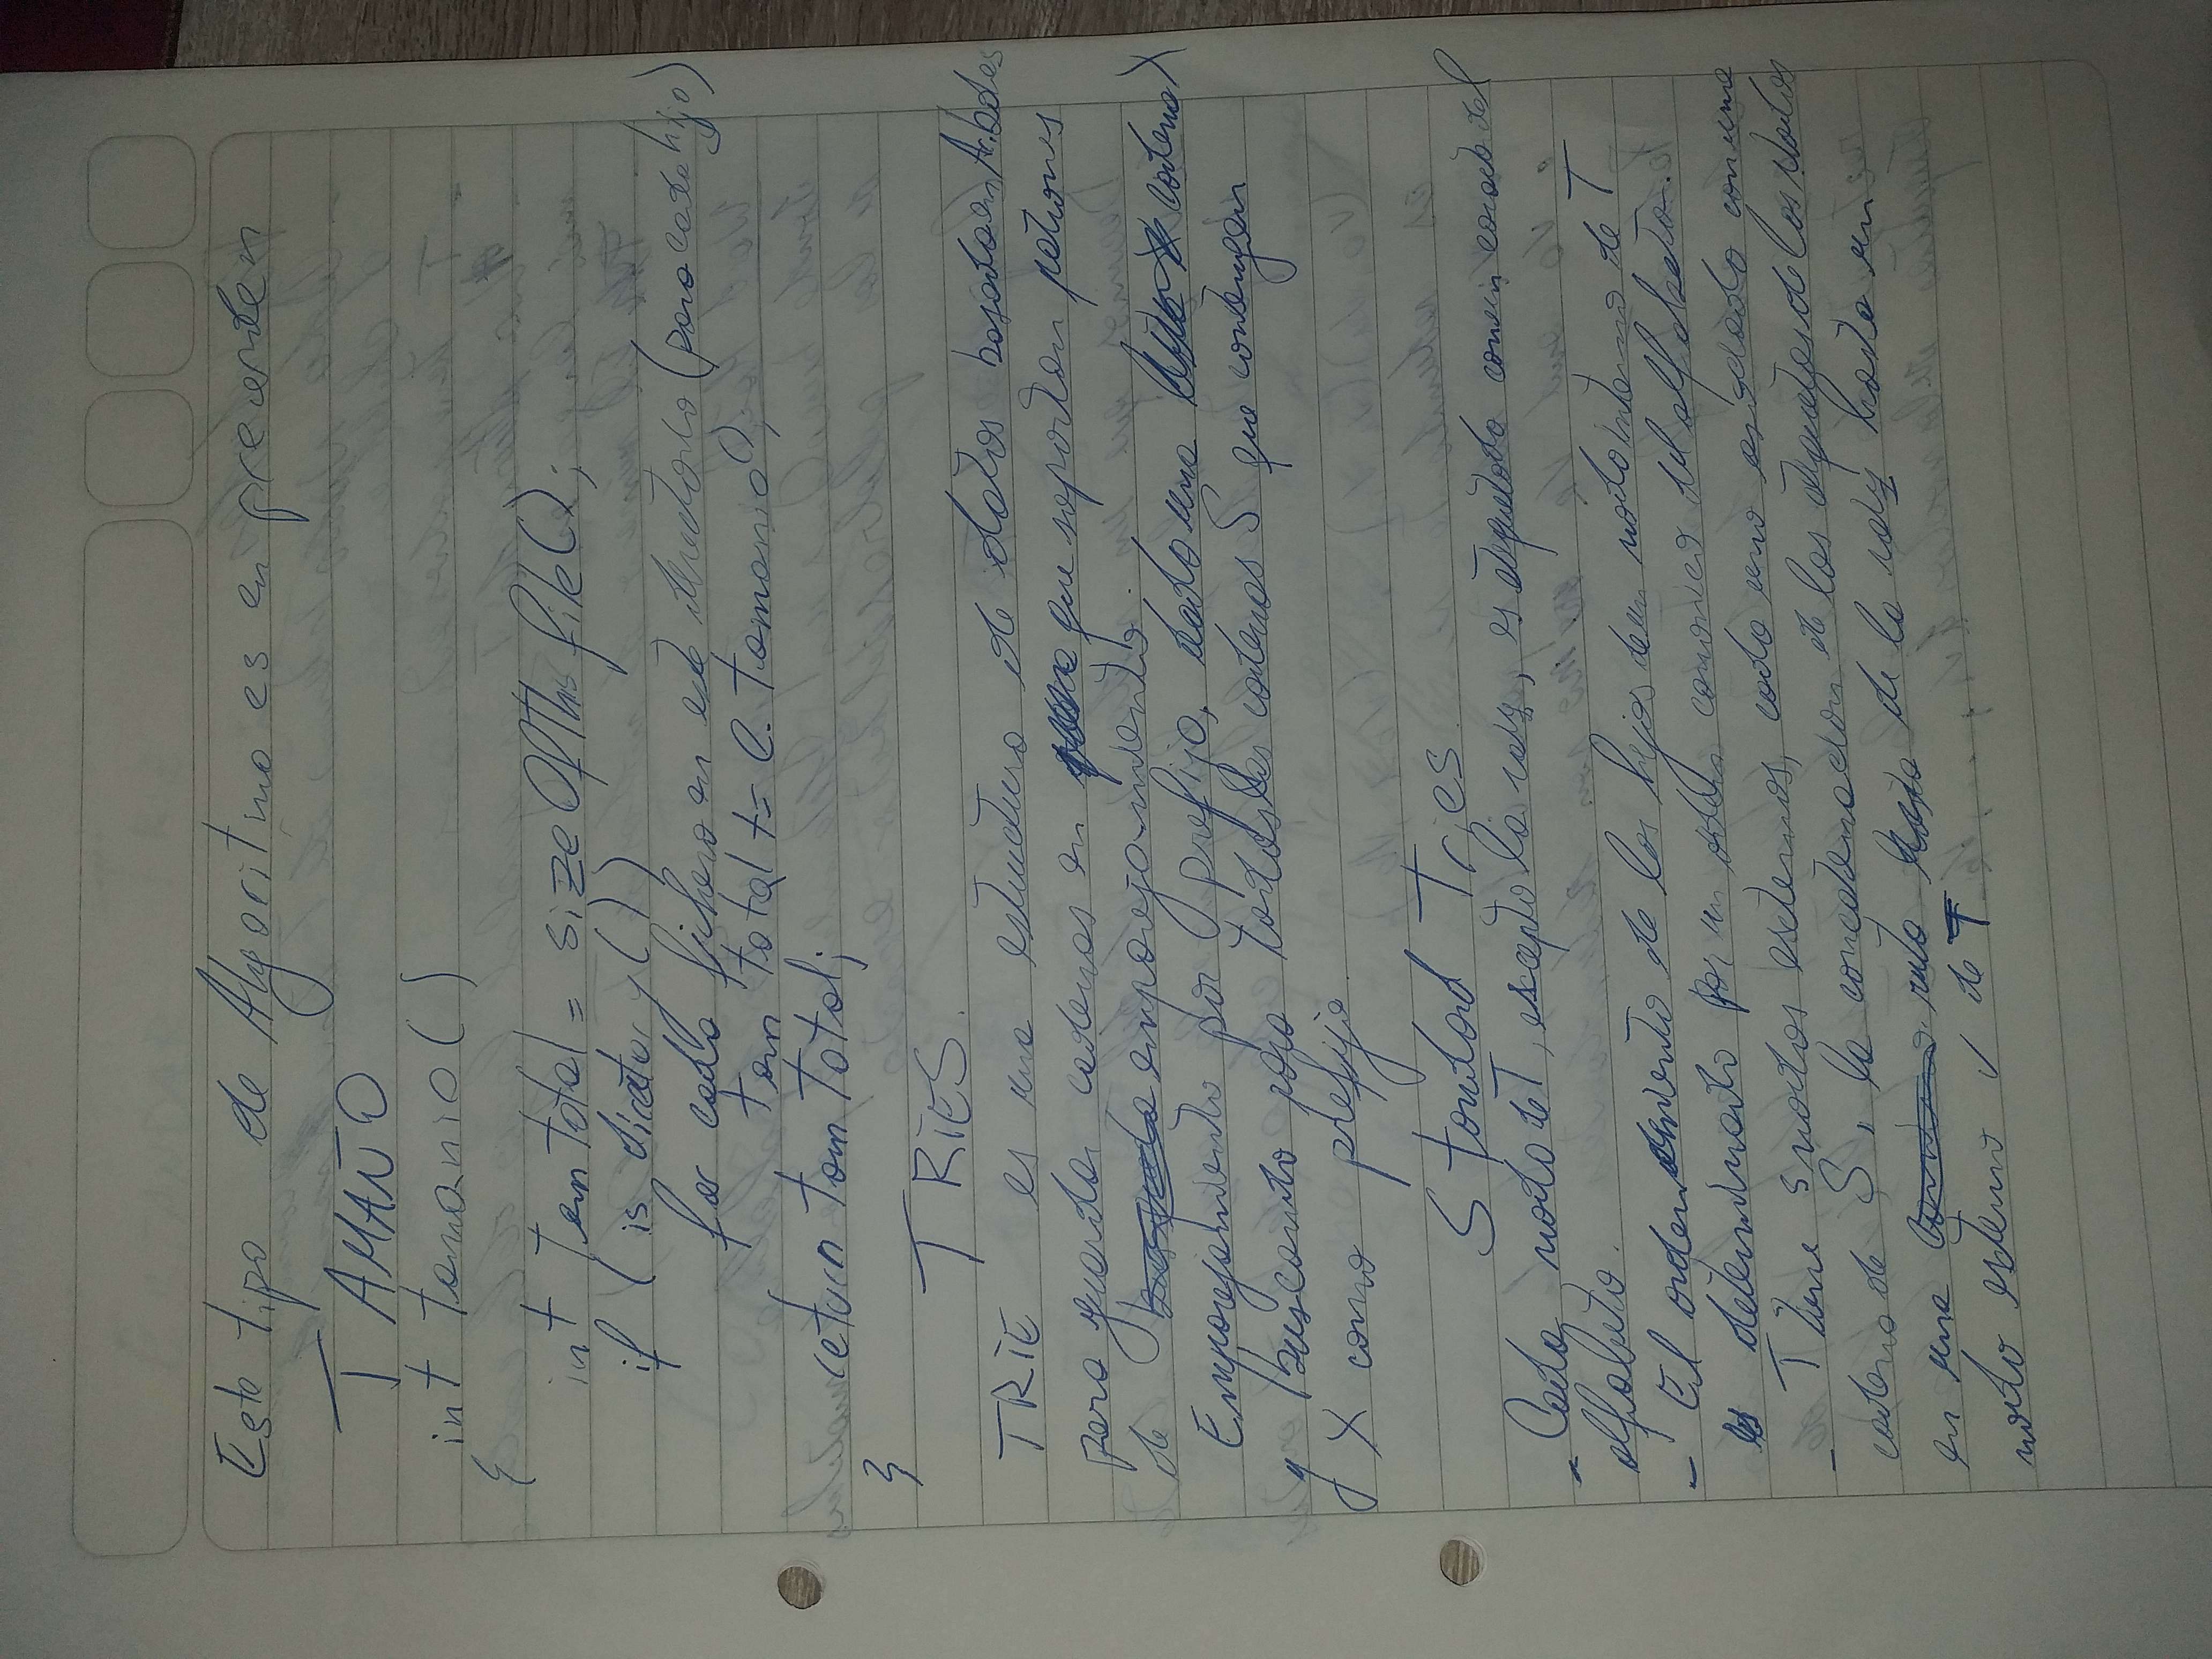 Este tipo de Algoritmo es en preorden
TAMAÑO
int tamanio()
{
int tam total = sizeOfThisfile();
if (is directory())
for cada fichero en este directorio (para cada hijo)
tam total += C.tamanio();
return tam Total;
}
TRIES.
TRIE es una estructura de datos basada en Arboles
para guardar cadenas en que soportan patrones
de emparejamiento.
Emparejamiento por prefijo, dado una cadena X
y buscando para todas las cadenas S que contengan
X como prefijo.
Standard Tries.
- Cada nodo de T, excepto la raiz, es etiquetado con un caracter del
alfabeto.
- El ordenamiento de los hijos de un nodo interno de T
es determinado por un orden canonico del alfabeto.
- T tiene s nodos externos, cada uno asociado con una
cadena de S, la concatenacion de las etiquetas de los Nodos
en una ruta de la raiz hasta un
nodo externo v de T